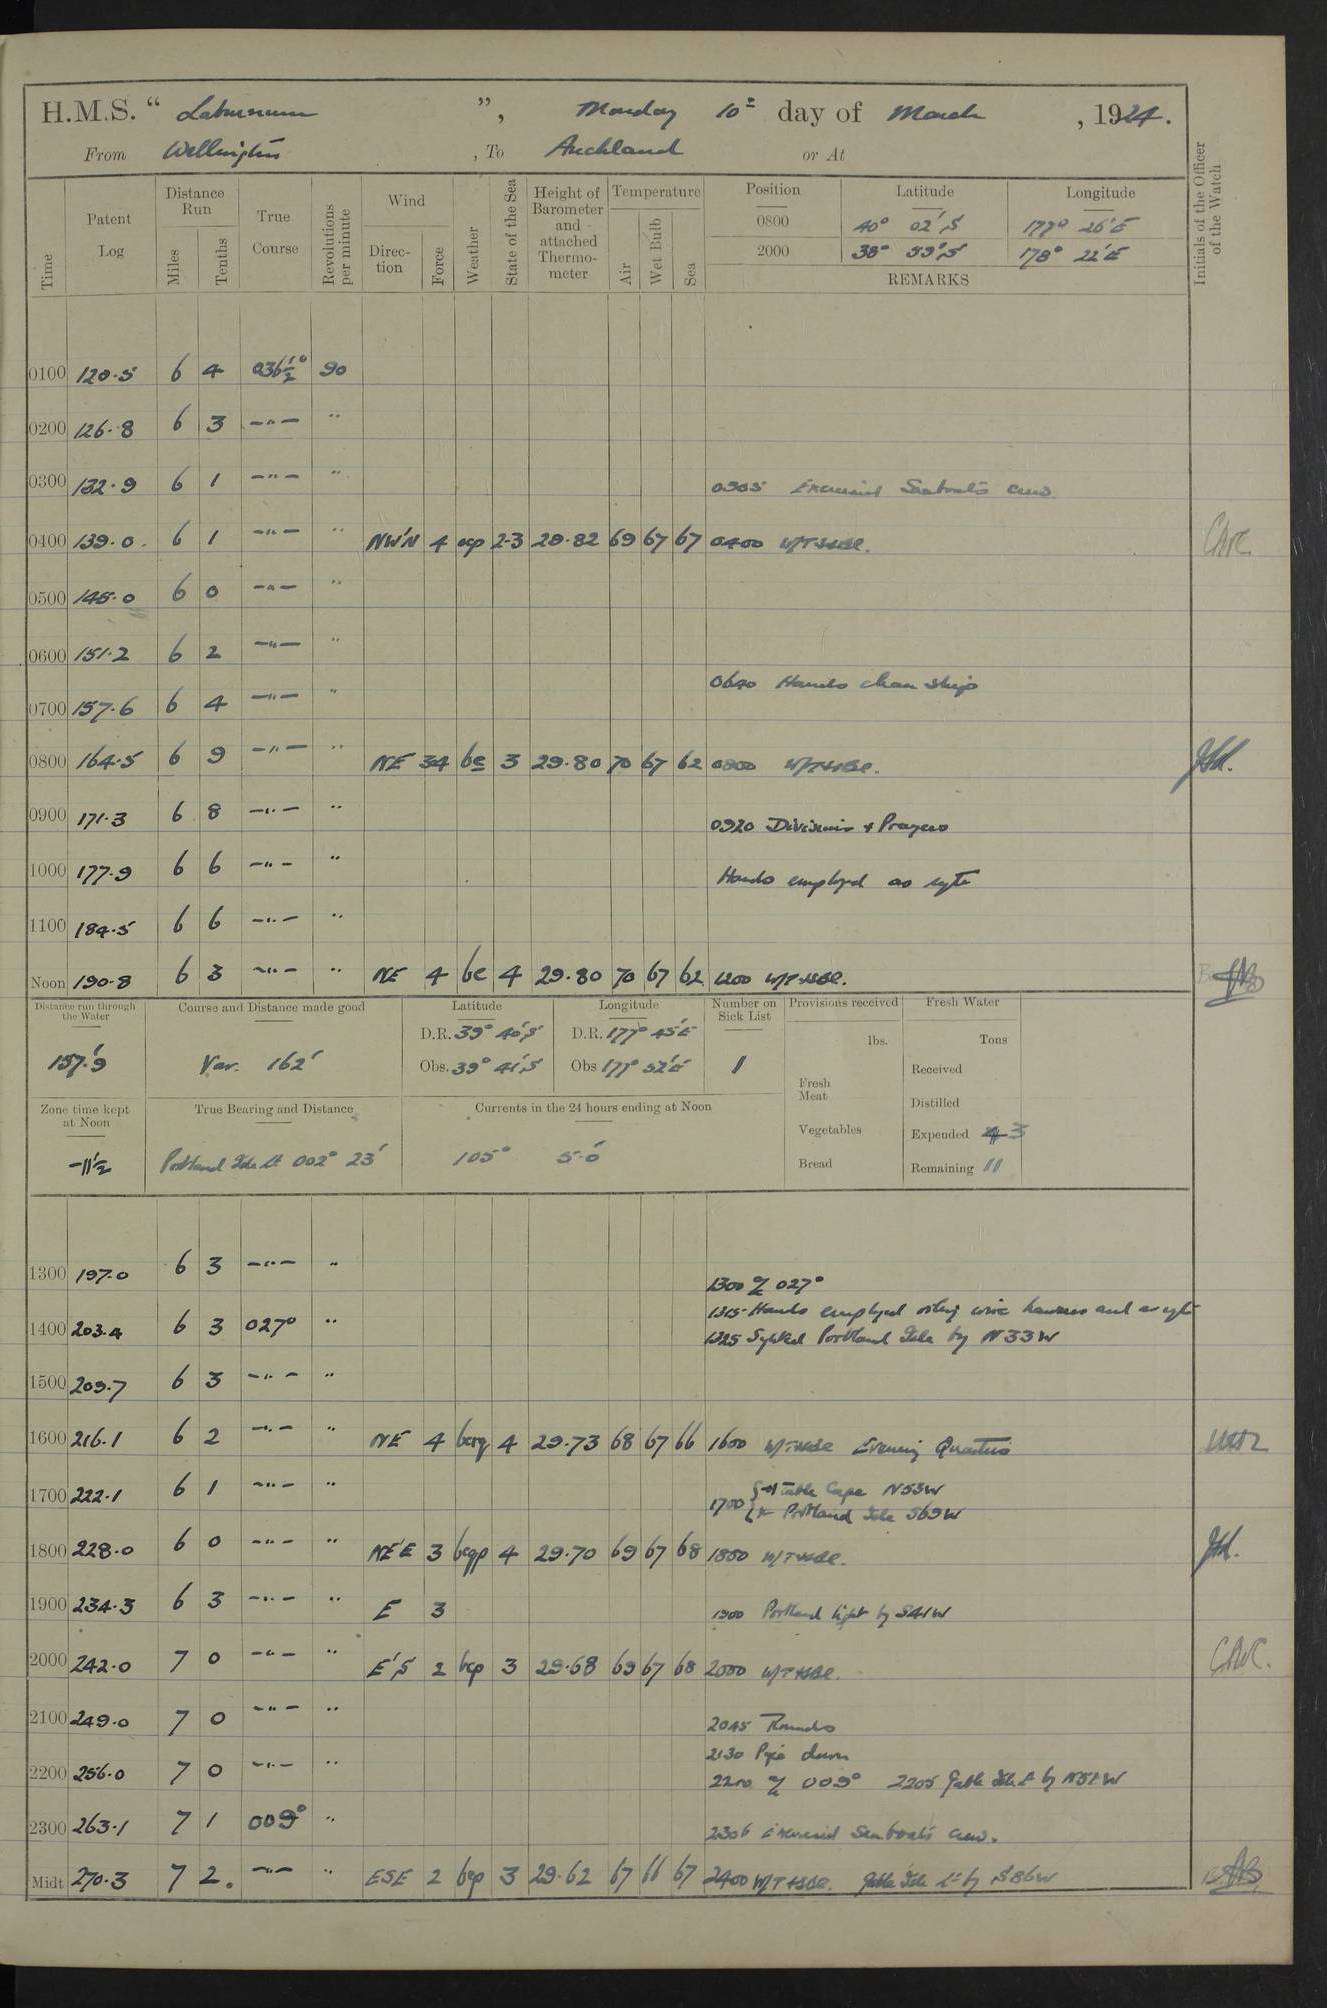 H.M.S. “ Laburnum ”, Monday 10th day of March , 1924.
From Wellington , To Auckland or At
Initials of the Officer of the Watch
Time
Patent Log
Distance Run
Miles
Tenths
True Course
Revolutions per minute
Wind
Direction
Force
Weather
State of the Sea
Height of Barometer and attached Thermometer
Temperature
Air
Wet Bulb
Sea
Position Latitude Longitude
0800 40° 02' S 177° 26' E
2000 38° 59' S 178° 22' E
REMARKS
0100 120.5 6 4 036½° 90
0200 126.8 6 3 —"— "
0300 132.9 6 1 —"— " 0305 Exercised Seaboat's crew
0400 139.0 6 1 —"— " NW'N 4 2-3 29.82 69 67 67 0400 W/T
0500 145.0 6 0 —"— "
0600 151.2 6 2 —"— "
0640 Hands clean ship
0700 157.6 6 4 —"— "
0800 164.5 6 9 —"— " NE 34 bc 3 29.80 70 67 62 0800 W/T
0900 171.3 6 8 —"— " 0920 Divisions + Prayers
1000 177.9 6 6 —"— " Hands employed as
1100 184.5 6 6 —"— "
Noon 190.8 6 3 —"— " NE 4 bc 4 29.80 70 67 62 1200 W/T
Distance run through the Water
157'.9
Course and Distance made good
Var. 162'
Latitude
D.R. 39° 40' S
Obs. 39° 41' S
Longitude
D.R. 177° 45' E
Obs 177° 52' E
Number on Sick List
1
Provisions received
lbs.
Fresh Meat
Vegetables
Bread
Fresh Water
Tons
Received
Distilled
Expended 3
Remaining 11
Zone time kept at Noon
-11½
True Bearing and Distance
Portland Isle Lt 002° 23'
Currents in the 24 hours ending at Noon
105° 5'.0
1300 197.0 6 3 —"— " 1300 027°
1315 Hands employed wire hawsers and as
1400 203.4 6 3 027° " 1325 Portland Isle by N33W
1500 209.7 6 3 —"— "
1600 216.1 6 2 —"— " NE 4 4 29.73 68 67 66 1600 W/T Evening Quarters
1700 222.1 6 1 —"— " 1700 { Table Cape N53W
Portland Isle S69W
1800 228.0 6 0 —"— " NE'E 3 4 29.70 69 67 68 1800 W/T
1900 234.3 6 3 —"— " E 3 1900 Portland light by S41W
2000 242.0 7 0 —"— " E'S 2 bcp 3 29.68 69 67 68 2000 W/T
2100 249.0 7 0 —"— " 2045 Rounds
2130 Pipe down
2200 256.0 7 0 —"— " 2200 009° 2205 Gable Isle Lt by
2300 263.1 7 1 009° " 2306 Exercised Seaboat's crew.
Midt 270.3 7 2. —"— " ESE 2 bcp 3 29.62 67 66 67 2400 W/T Gable Isle Lt by S86W